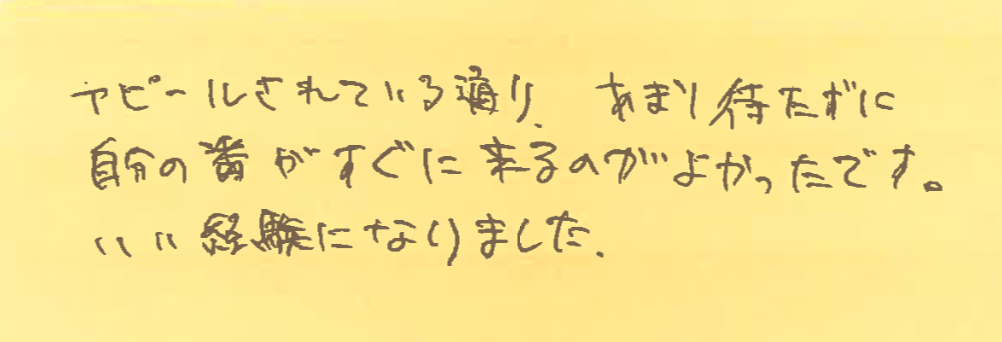 アピールされている通り、あまり待たずに
自分の番がすぐに来るのがよかったです。
いい経験になりました.